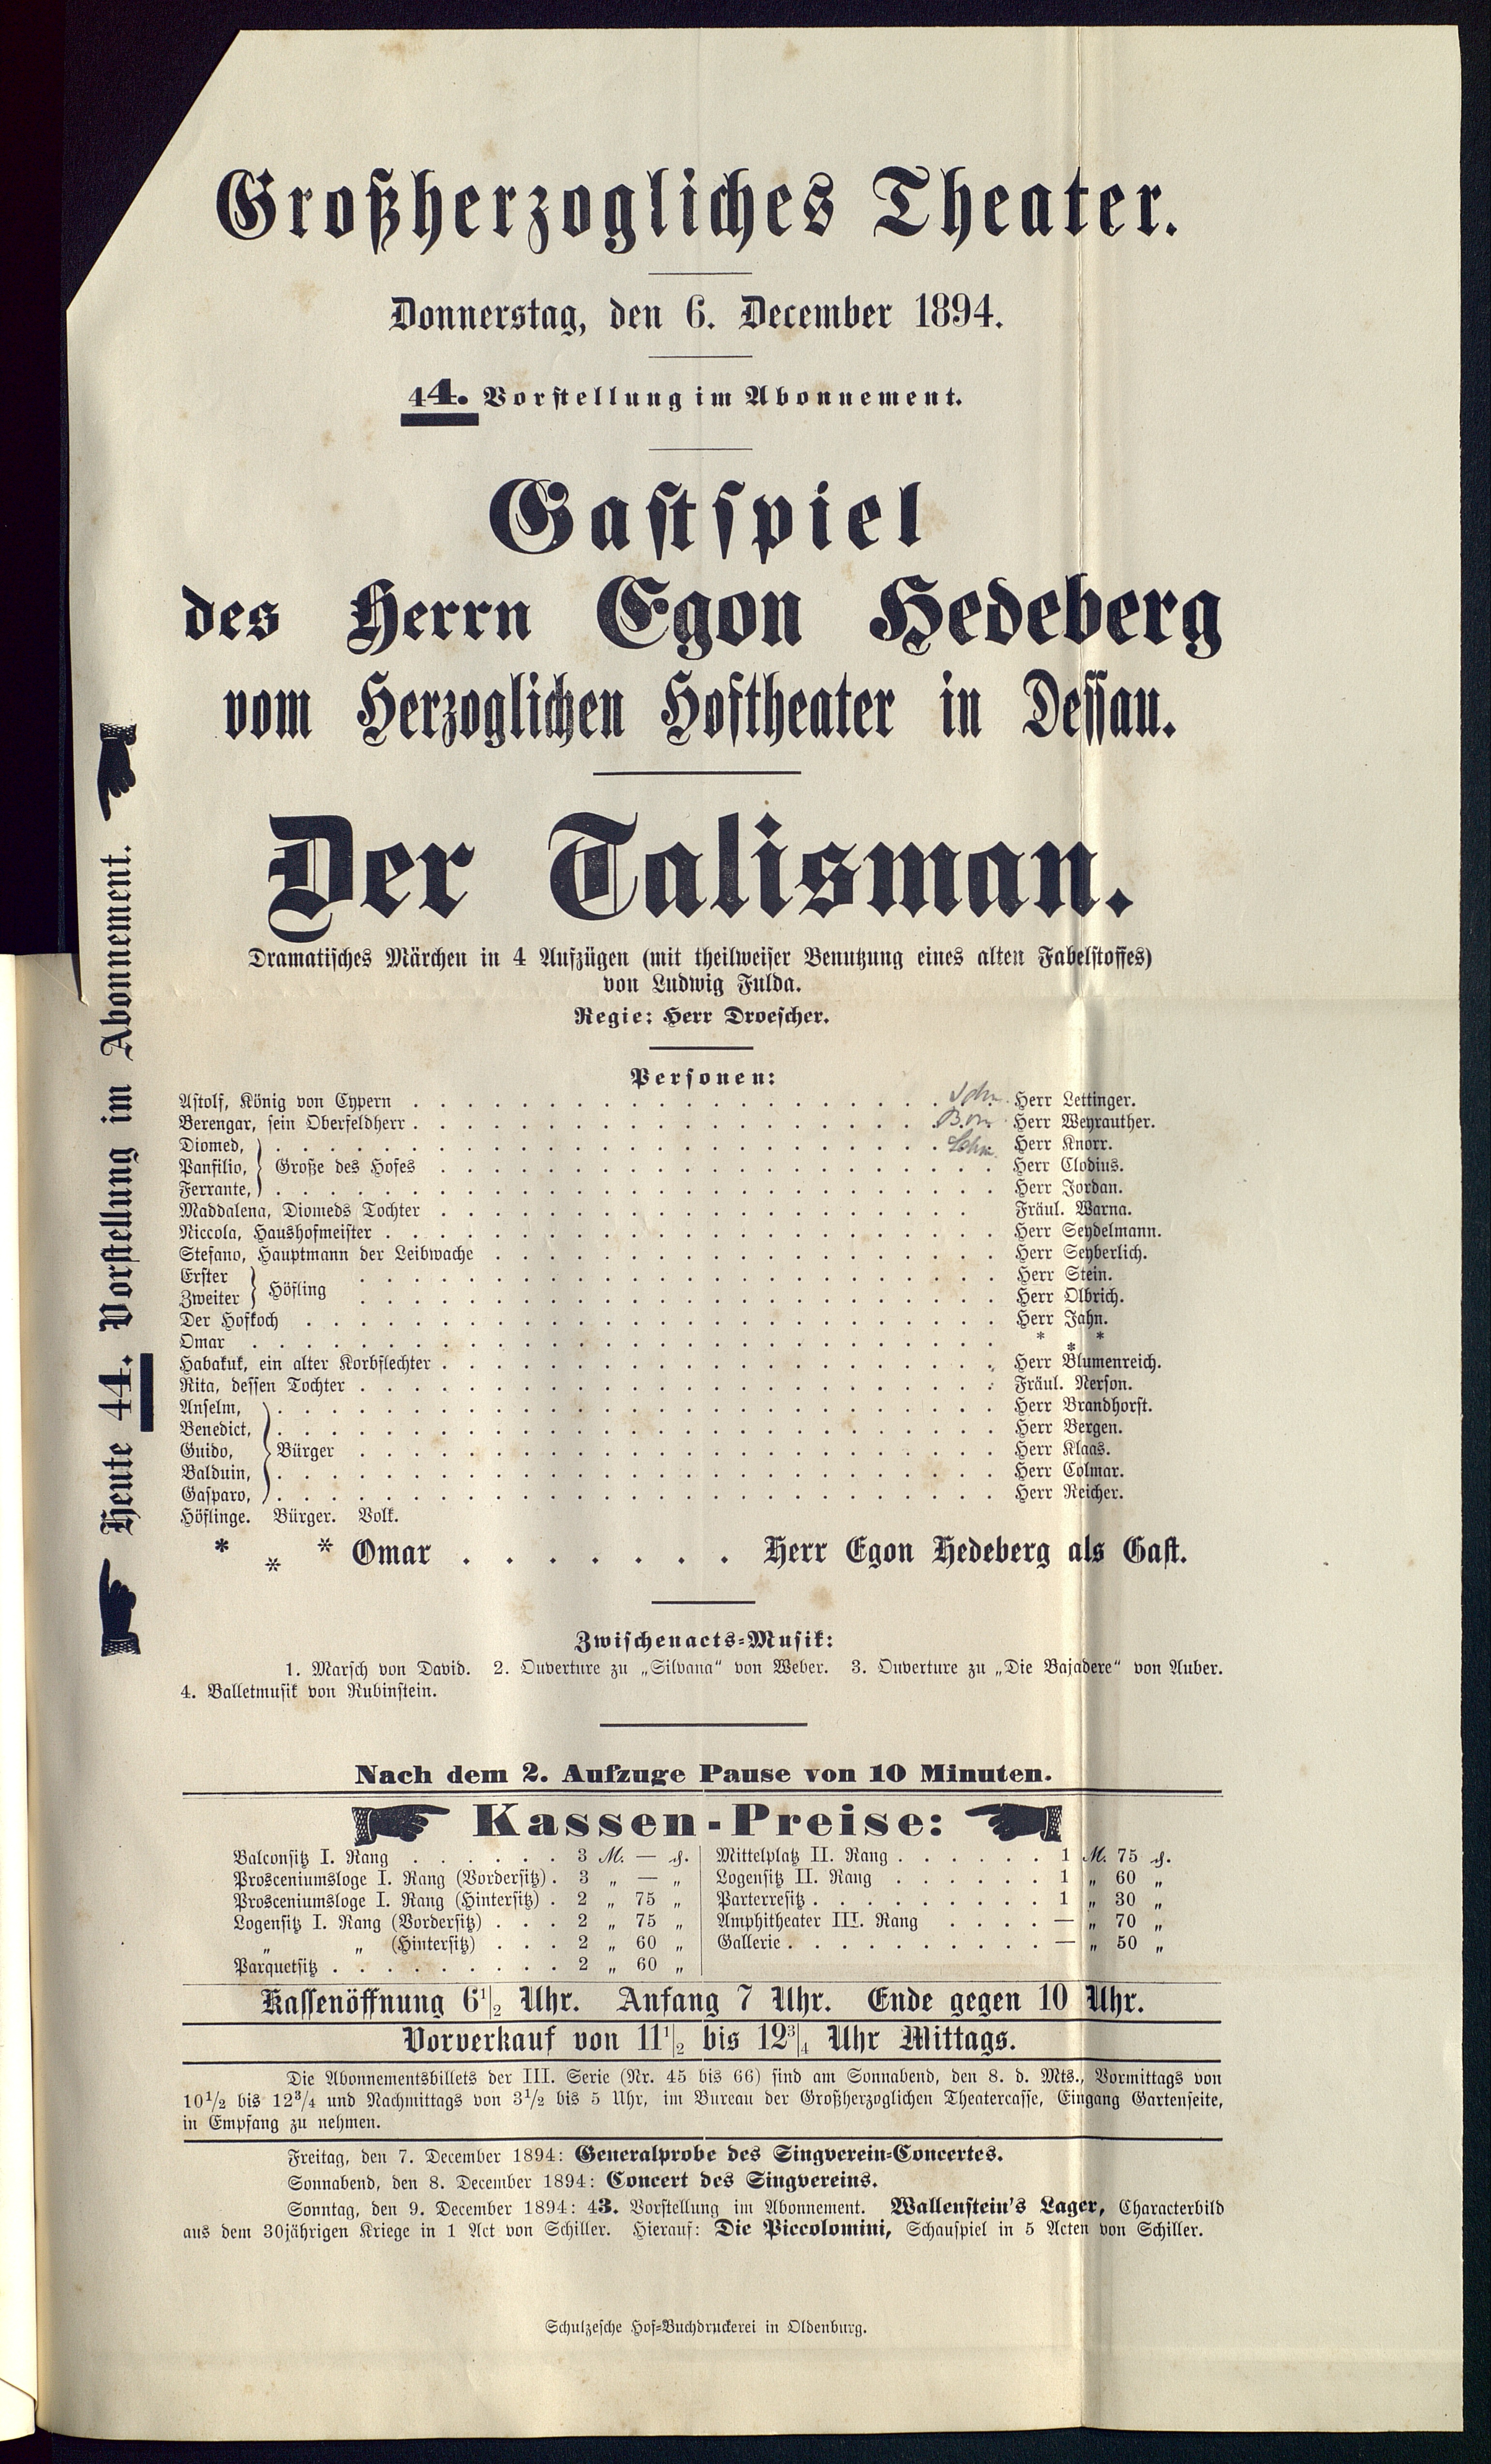 Großherzogliches Theater.
Donnerstag, den 6. December 1894.
44. Vorstellung im Abonnement.
Gastspiel
des Herrn Egon Hedeberg
vom Herzoglichen Hoftheater in Dessau.
Der Talisman.
Dramatisches Märchen in 4 Aufzügen (mit theilweiser Benutzung eines alten Fabelstoffes)
von Ludwig Fulda.
Regie: Herr Droescher.
Personen:
Astolf, König von Cypern . . . Herr Lettinger.
Berengar, sein Oberfeldherr . . . Herr Weyrauther.
Diomed, . . . Herr Knorr.
Panfilio, } Große des Hofes . . . Herr Clodius.
Ferrante, . . . Herr Jordan.
Maddalena, Diomeds Tochter . . . Fräul. Warna.
Niccola, Haushofmeister . . . Herr Seydelmann.
Stefano, Hauptmann der Leibwache . . . Herr Seyberlich.
Erster } Höfling . . . Herr Stein.
Zweiter . . . Herr Olbrich.
Der Hofkoch . . . Herr Jahn.
Omar . . . * * *
Habakuk, ein alter Korbflechter . . . Herr Blumenreich.
Rita, dessen Tochter . . . Fräul. Nerson.
Anselm, . . . Herr Brandhorst.
Benedict, . . . Herr Bergen.
Guido, } Bürger . . . Herr Klaas.
Balduin, . . . Herr Colmar.
Gasparo, . . . Herr Reicher.
Höflinge. Bürger. Volk.
* * * Omar . . . . . . . Herr Egon Hedeberg als Gast.
Zwischenacts-Musik:
1. Marsch von David. 2. Ouverture zu „Silvana“ von Weber. 3. Ouverture zu „Die Bajadere“ von Auber.
4. Balletmusik von Rubinstein.
Nach dem 2. Aufzuge Pause von 10 Minuten.
Kassen-Preise:
Balconsitz I. Rang . . . 3 M. — ₰.
Prosceniumsloge I. Rang (Vordersitz) . 3 „ — „
Prosceniumsloge I. Rang (Hintersitz) . 2 „ 75 „
Logensitz I. Rang (Vordersitz) . . . 2 „ 75 „
„ „ (Hintersitz) . . . 2 „ 60 „
Parquetsitz . . . 2 „ 60 „
Mittelplatz II. Rang . . . 1 M. 75 ₰.
Logensitz II. Rang . . . 1 „ 60 „
Parterresitz . . . 1 „ 30 „
Amphitheater III. Rang . . . — „ 70 „
Gallerie . . . — „ 50 „
Kassenöffnung 6 1/2 Uhr. Anfang 7 Uhr. Ende gegen 10 Uhr.
Vorverkauf von 11 1/2 bis 12 3/4 Uhr Mittags.
Die Abonnementsbillets der III. Serie (Nr. 45 bis 66) sind am Sonnabend, den 8. d. Mts., Vormittags von
10 1/2 bis 12 3/4 und Nachmittags von 3 1/2 bis 5 Uhr, im Bureau der Großherzoglichen Theatercasse, Eingang Gartenseite,
in Empfang zu nehmen.
Freitag, den 7. December 1894: Generalprobe des Singverein-Concertes.
Sonnabend, den 8. December 1894: Concert des Singvereins.
Sonntag, den 9. December 1894: 43. Vorstellung im Abonnement. Wallenstein's Lager, Characterbild
aus dem 30jährigen Kriege in 1 Act von Schiller. Hierauf: Die Piccolomini, Schauspiel in 5 Acten von Schiller.
Schulzesche Hof-Buchdruckerei in Oldenburg.
Heute 44. Vorstellung im Abonnement.